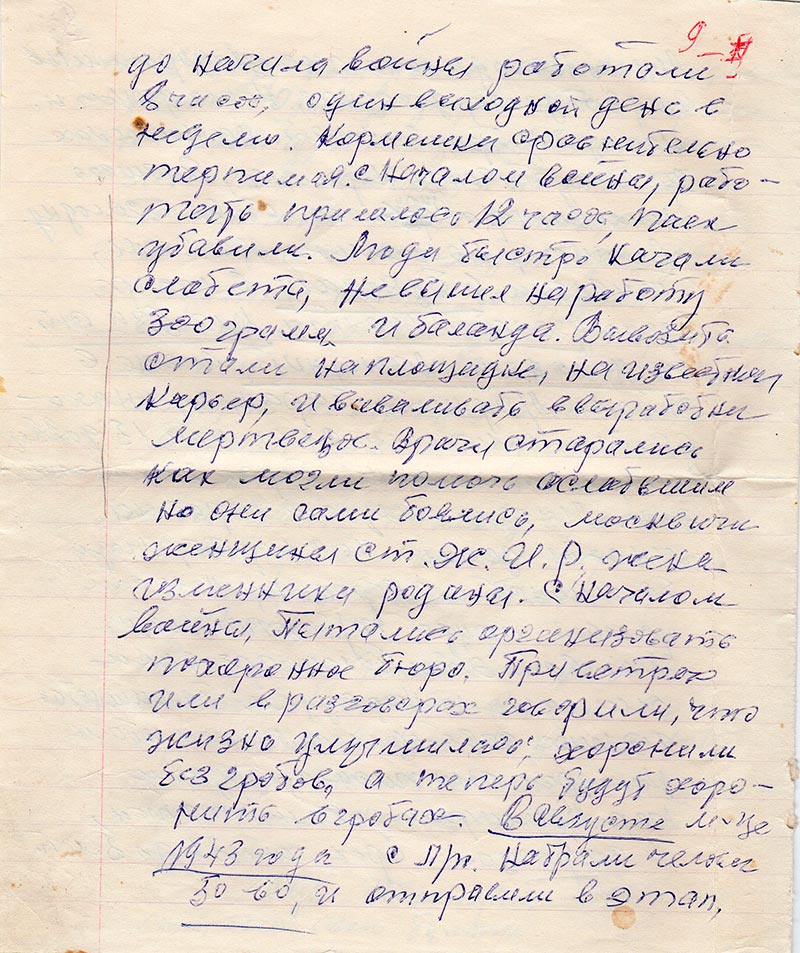 9-9
до начала войны работали
8 часов, один выходной день в
неделю. Кормешка сравнительно
терпимая. С началом войны, рабо-
тать пришлось 12 часов, паек
убавили. Люди быстро начали
слабеть, невышел на работу
300 грамм и баланда. Вывозить
стали на площадке, на известков
карьер, и вываливать в выработки
мертвецов. Врачи старались
как могли помочь ослабвшим
но они сами боялись, москвички
женщины ст. Ж. И. Р. жена
изменника родины. С началом
войны, Пытались организовать
похоронное бюро. При встречах
или в разговорах говорили, что
жизнь улучшилась, хоронили
без гробов, а теперь будут хоро-
нить в гробах. В августе м-це
1943 года с Пр. набрали человек
50 60, и отправили в этап,